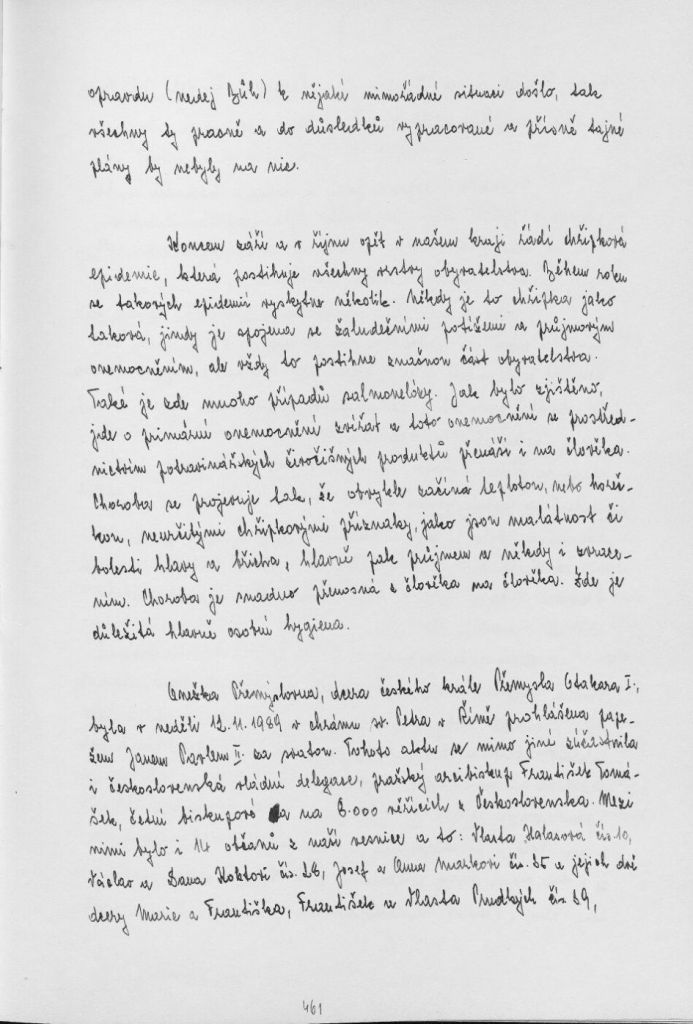 opravdu (nedej Bůh) k nějaké mimořádné situaci došlo, tak
všechny ty pracně a do důsledků vypracované a přísně tajné
plány by nebyly na nic.
Koncem září a v říjnu opět v našem kraji řádí chřipková
epidemie, která postihuje všechny vrstvy obyvatelstva. Během roku
se takových epidemií vyskytne několik. Někdy je to chřipka jako
taková, jindy je spojena se žaludečními potížemi a průjmovým
onemocněním, ale vždy to postihne značnou část obyvatelstva.
Také je zde mnoho případů salmonelózy. Jak bylo zjištěno,
jde o primární onemocnění zvířat a toto onemocnění se prostřed-
nictvím potravinářských živočišných produktů přenáší i na člověka.
Choroba se projevuje tak, že obvykle začíná teplotou, nebo horeč-
kou, neurčitými chřipkovými příznaky, jako jsou malátnost či
bolesti hlavy a břicha, hlavně pak průjmem a někdy i zvrace-
ním. Choroba je snadno přenosná z člověka na člověka. Zde je
důležitá hlavně osobní hygiena.
Anežka Přemyslovna, dcera českého krále Přemysla Otakara I.,
byla v neděli 12.11.1989 v chrámu sv. Petra v Římě prohlášena pape-
žem Janem Pavlem II. za svatou. Tohoto aktu se mimo jiné zúčastnila
i československá vládní delegace, pražský arcibiskup František Tomá-
šek, četní biskupové a na 6.000 věřících z Československa. Mezi
nimi bylo i 14 občanů z naší vesnice a to: Vlasta Halasová čís. 10,
Václav a Dana Hoktovi čís. 28, Josef a Anna Markovi čís. 35 a jejich dvě
dcery Marie a Františka, František a Vlasta Prudkých čís. 89,
461